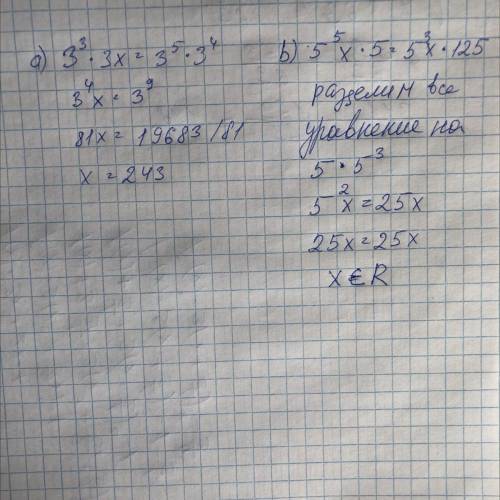 a) 3³ · 3x = 3⁵ · 3⁴
3⁴x = 3⁹
81x = 19683 /81
x = 243
b) 5⁵x · 5 = 5³x · 125
разделим все
уравнение на
5 · 5³
5²x = 25x
25x = 25x
x ∈ R